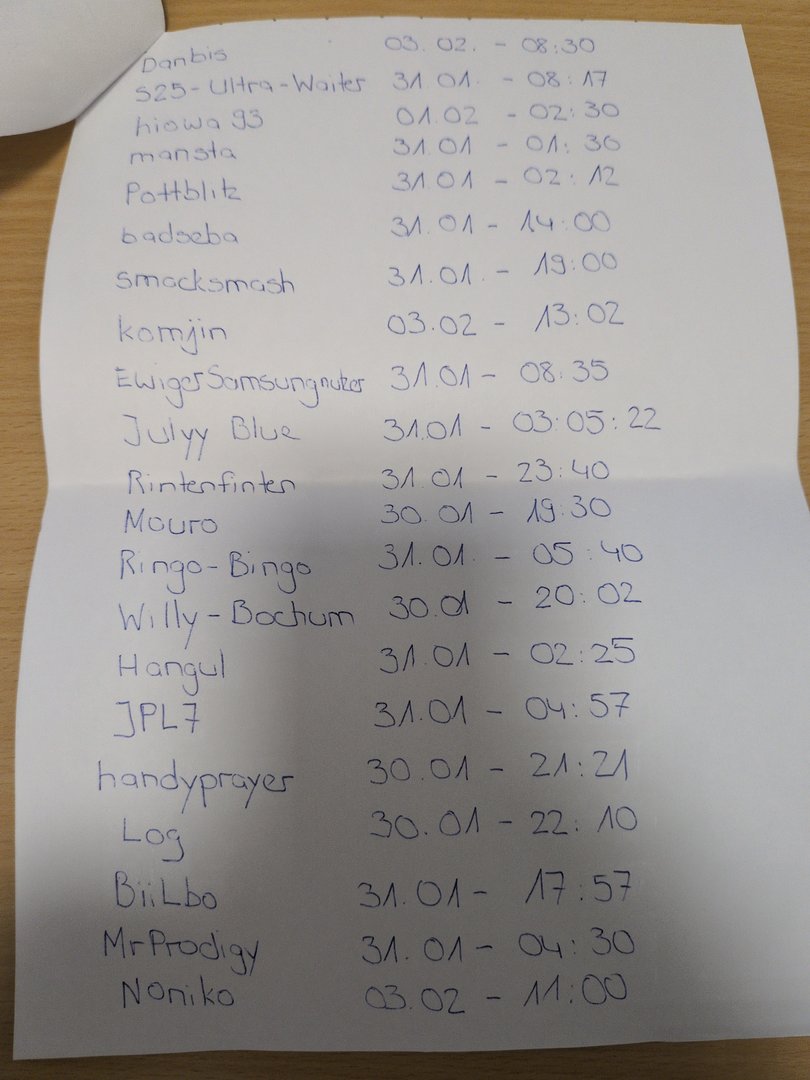 Danbis 03.02. - 08:30
S25-Ultra-Waiter 31.01. - 08:17
hiowa93 01.02 - 02:30
mansta 31.01 - 01:30
Pottblitz 31.01 - 02:12
badseba 31.01 - 14:00
smacksmash 31.01. - 19:00
komjin 03.02 - 13:02
EwigerSamsungnutzer 31.01 - 08:35
Julyy Blue 31.01 - 03:05:22
Rintenfinten 31.01 - 23:40
Mauro 30.01 - 19:30
Ringo-Bingo 31.01. - 05:40
Willy-Bochum 30.01 - 20:02
Hangul 31.01 - 02:25
JPL7 31.01 - 04:57
handyprayer 30.01 - 21:21
Log 30.01 - 22:10
BiiLbo 31.01 - 17:57
MrProdigy 31.01 - 04:30
Noniko 03.02 - 11:00